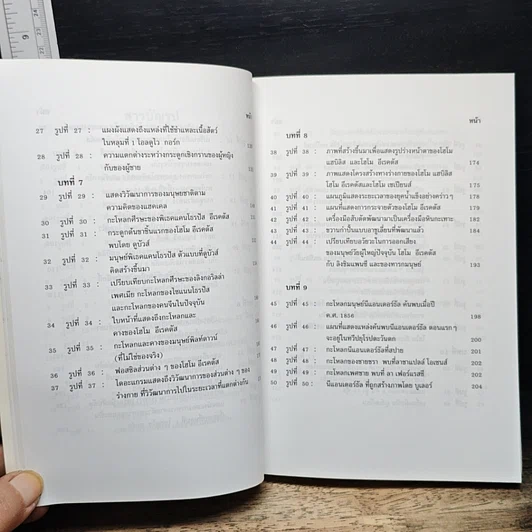 หน้า
27 รูปที่ 27 : แผงผังแสดงถึงแหล่งที่ใช้ชำแหละเนื้อสัตว์
ในหลุมที่ 1 โอลดูไว กอร์ก
28 รูปที่ 28 : ความแตกต่างระหว่างกระดูกเชิงกรานของผู้หญิง
กับของผู้ชาย
บทที่ 7
29 รูปที่ 29 : แสดงวิวัฒนาการของมนุษยชาติตาม
ความคิดของแฮคเคล
30 รูปที่ 30 : กะโหลกศีรษะของพิเธคแคนโธรปัส อีเรคตัส
31 รูปที่ 31 : กระดูกต้นขาชิ้นแรกของโฮโม อีเรคตัส
พบโดย ดูบัวส์
32 รูปที่ 32 : มนุษย์พิเธคแคนโธรปัส ตัวแบบที่ดูบัวส์
คิดสร้างขึ้นมา
33 รูปที่ 33 : เปรียบเทียบกะโหลกศีรษะของลิงกอริลล่า
เพศเมีย กะโหลกของไซแนนโธรปัส
และกะโหลกของคนจีนในปัจจุบัน
34 รูปที่ 34 : ใบหน้าที่แสดงถึงกะโหลกและ
คางของโฮโม อีเรคตัส
35 รูปที่ 35 : กะโหลกและคางของมนุษย์พิลท์ดาวน์
(ที่ไม่ใช่ของจริง)
36 รูปที่ 36 : ฟอสซิลส่วนต่าง ๆ ของโฮโม อีเรคตัส
37 รูปที่ 37 : ไดอะแกรมแสดงถึงวิวัฒนาการของส่วนต่าง ๆ ของ
ร่างกาย ที่วิวัฒนาการไปในระยะเวลาที่แตกต่างกัน
หน้า
บทที่ 8
38 รูปที่ 38 : ภาพที่สร้างขึ้นมาเพื่อแสดงรูปร่างหน้าตาของโฮโม
แฮบิลิส และโฮโม อีเรคตัส 174
39 รูปที่ 39 : ภาพแสดงโครงสร้างทางร่างกายของโฮโม แฮบิลิส
โฮโม อีเรคตัสและโฮโม เซเปียนส์ 175
40 รูปที่ 40 : แผนภูมิแสดงระยะเวลาของยุคน้ำแข็งอย่างคร่าวๆ 178
41 รูปที่ 41 : แผนที่แสดงการกระจายตัวของโฮโม อีเรคตัส 179
42 รูปที่ 42 : เครื่องมือสับตัดพัฒนามาเป็นเครื่องมือหินกะเทาะ 181
43 รูปที่ 43 : ขวานกำปั้นแบบอาชูเลียนที่พัฒนาแล้ว 182
44 รูปที่ 44 : เปรียบเทียบอวัยวะในการออกเสียง
ของมนุษย์วัยผู้ใหญ่ปัจจุบัน โฮโม อีเรคตัส
กับ ลิงชิมแพนซี และของทารกมนุษย์ 190
บทที่ 9
45 รูปที่ 45 : กะโหลกมนุษย์นีแอนเดอร์ธัล ค้นพบเมื่อปี
ค.ศ. 1856 198
46 รูปที่ 46 : แผนที่แสดงแหล่งค้นพบนีแอนเดอร์ธัล ตอนแรกๆ
จะอยู่ในทวีปยุโรปตะวันตก 200
47 รูปที่ 47 : กะโหลกนีแอนเดอร์ธัลที่สปาย 201
48 รูปที่ 48 : กะโหลกของชายชรา พบที่ลาชาแปลล์ โอแซงส์ 202
49 รูปที่ 49 : กะโหลกเพศชาย พบที่ ลา เฟอร์แรสซี่ 202
50 รูปที่ 50 : นีแอนเดอร์ธัล ที่ถูกสร้างภาพโดย บูเลอร์ 204